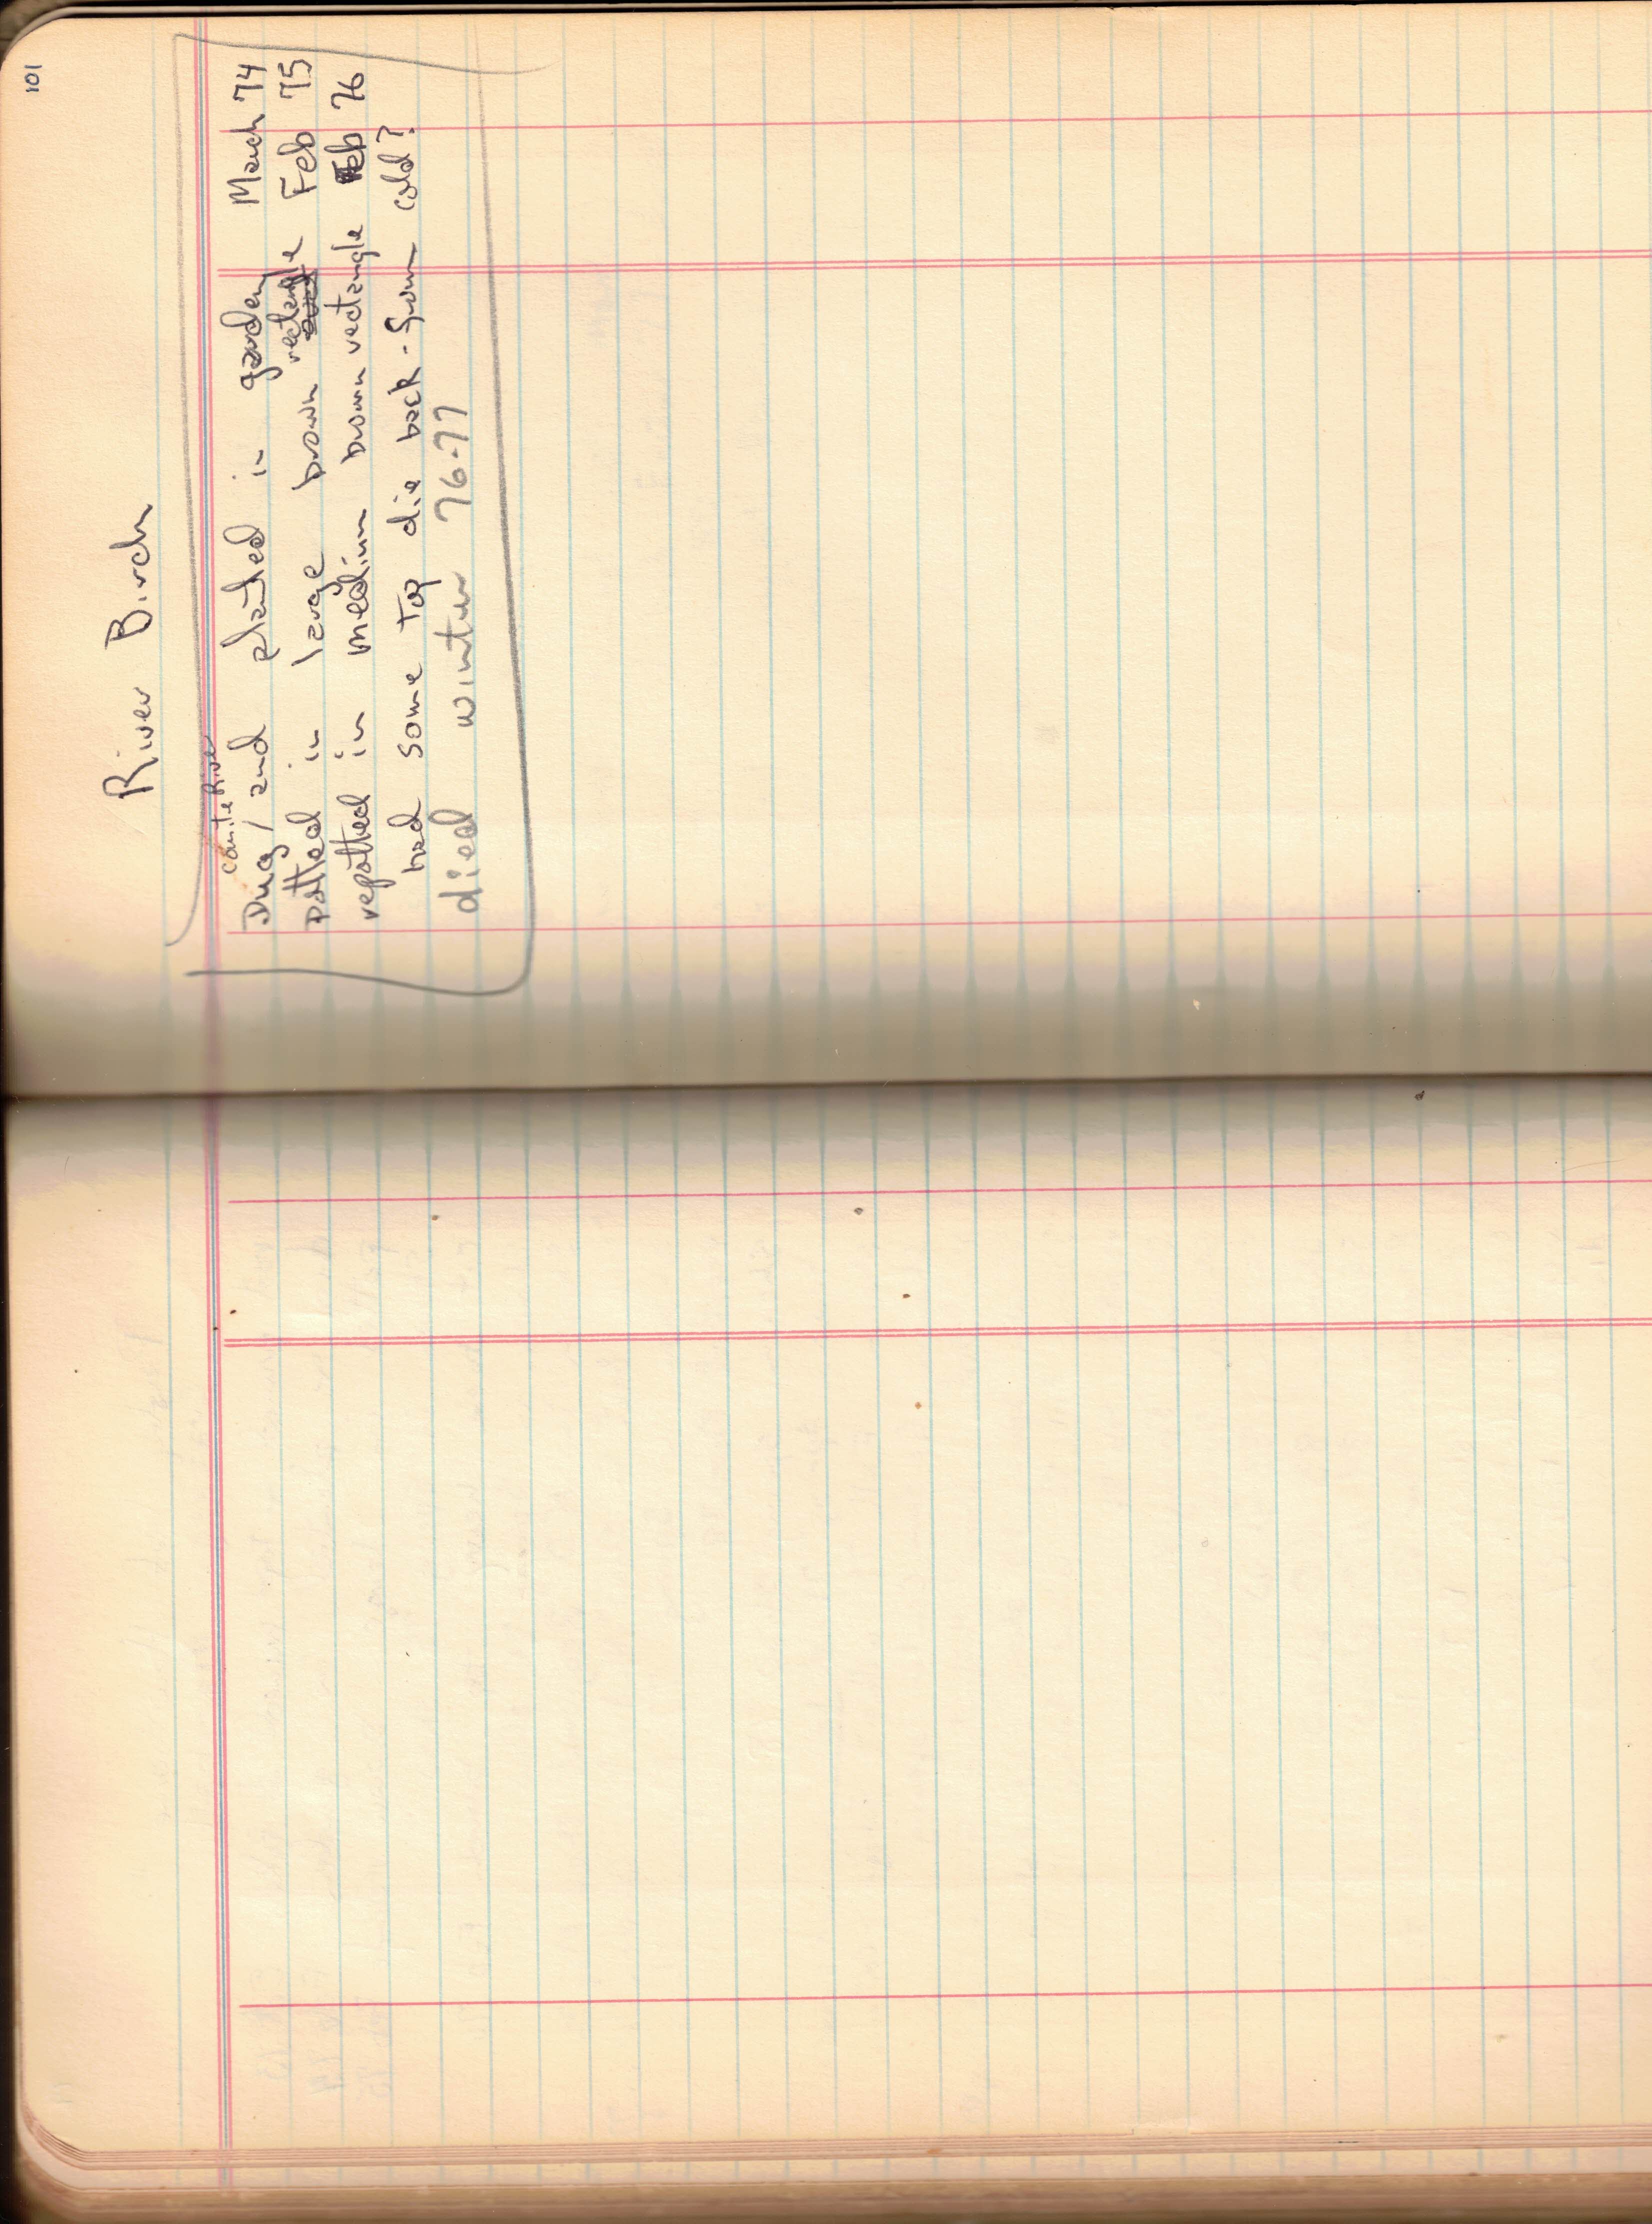 101
River Birch
Comite River
Dug / and planted in garden March 74
rectangle
potted in large brown Feb 75
repotted in medium brown rectangle Feb 76
had some top die back - from cold?
died winter 76-77